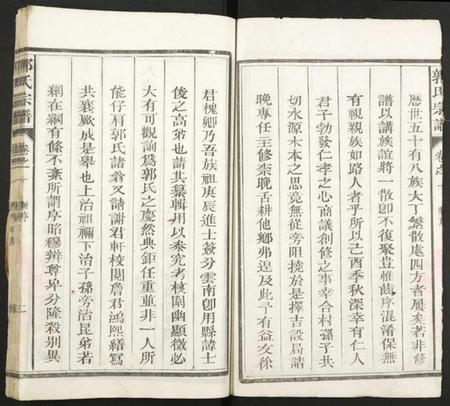 郭氏宗譜
卷之一
歷世五十有八族大丁繁散處四方者屢矣若非修
譜以講族誼將一散卽不復聚豈惟蔭序混淆保無
有視親族如路人者乎所以己酉季秋深幸有仁人
君子勃發仁孝之心商議創修之事幸合村子孫共
切水源木本之思竟無從旁阻撓於是擇吉設局請
晚專任主修柰晚舌耕他鄉弗遑及此于有益友徐
君槐卿乃吾族祖庚辰進士簽分雲南卽用縣諱士
俊之高弟也請其纂輯用以黍究考核闡幽顯微必
大有可觀諭爲郭氏之慶然典鉅任重並非一人所
能仔肩郭氏諸翁又請謝君軒校閱詹君鴻熙繕寫
共襄厥成是舉也上治祖禰下治子孫旁治昆弟若
綱在綱有條不紊所謂序昭穆辨尊卑分隆殺别異
郭氏宗譜
卷之一